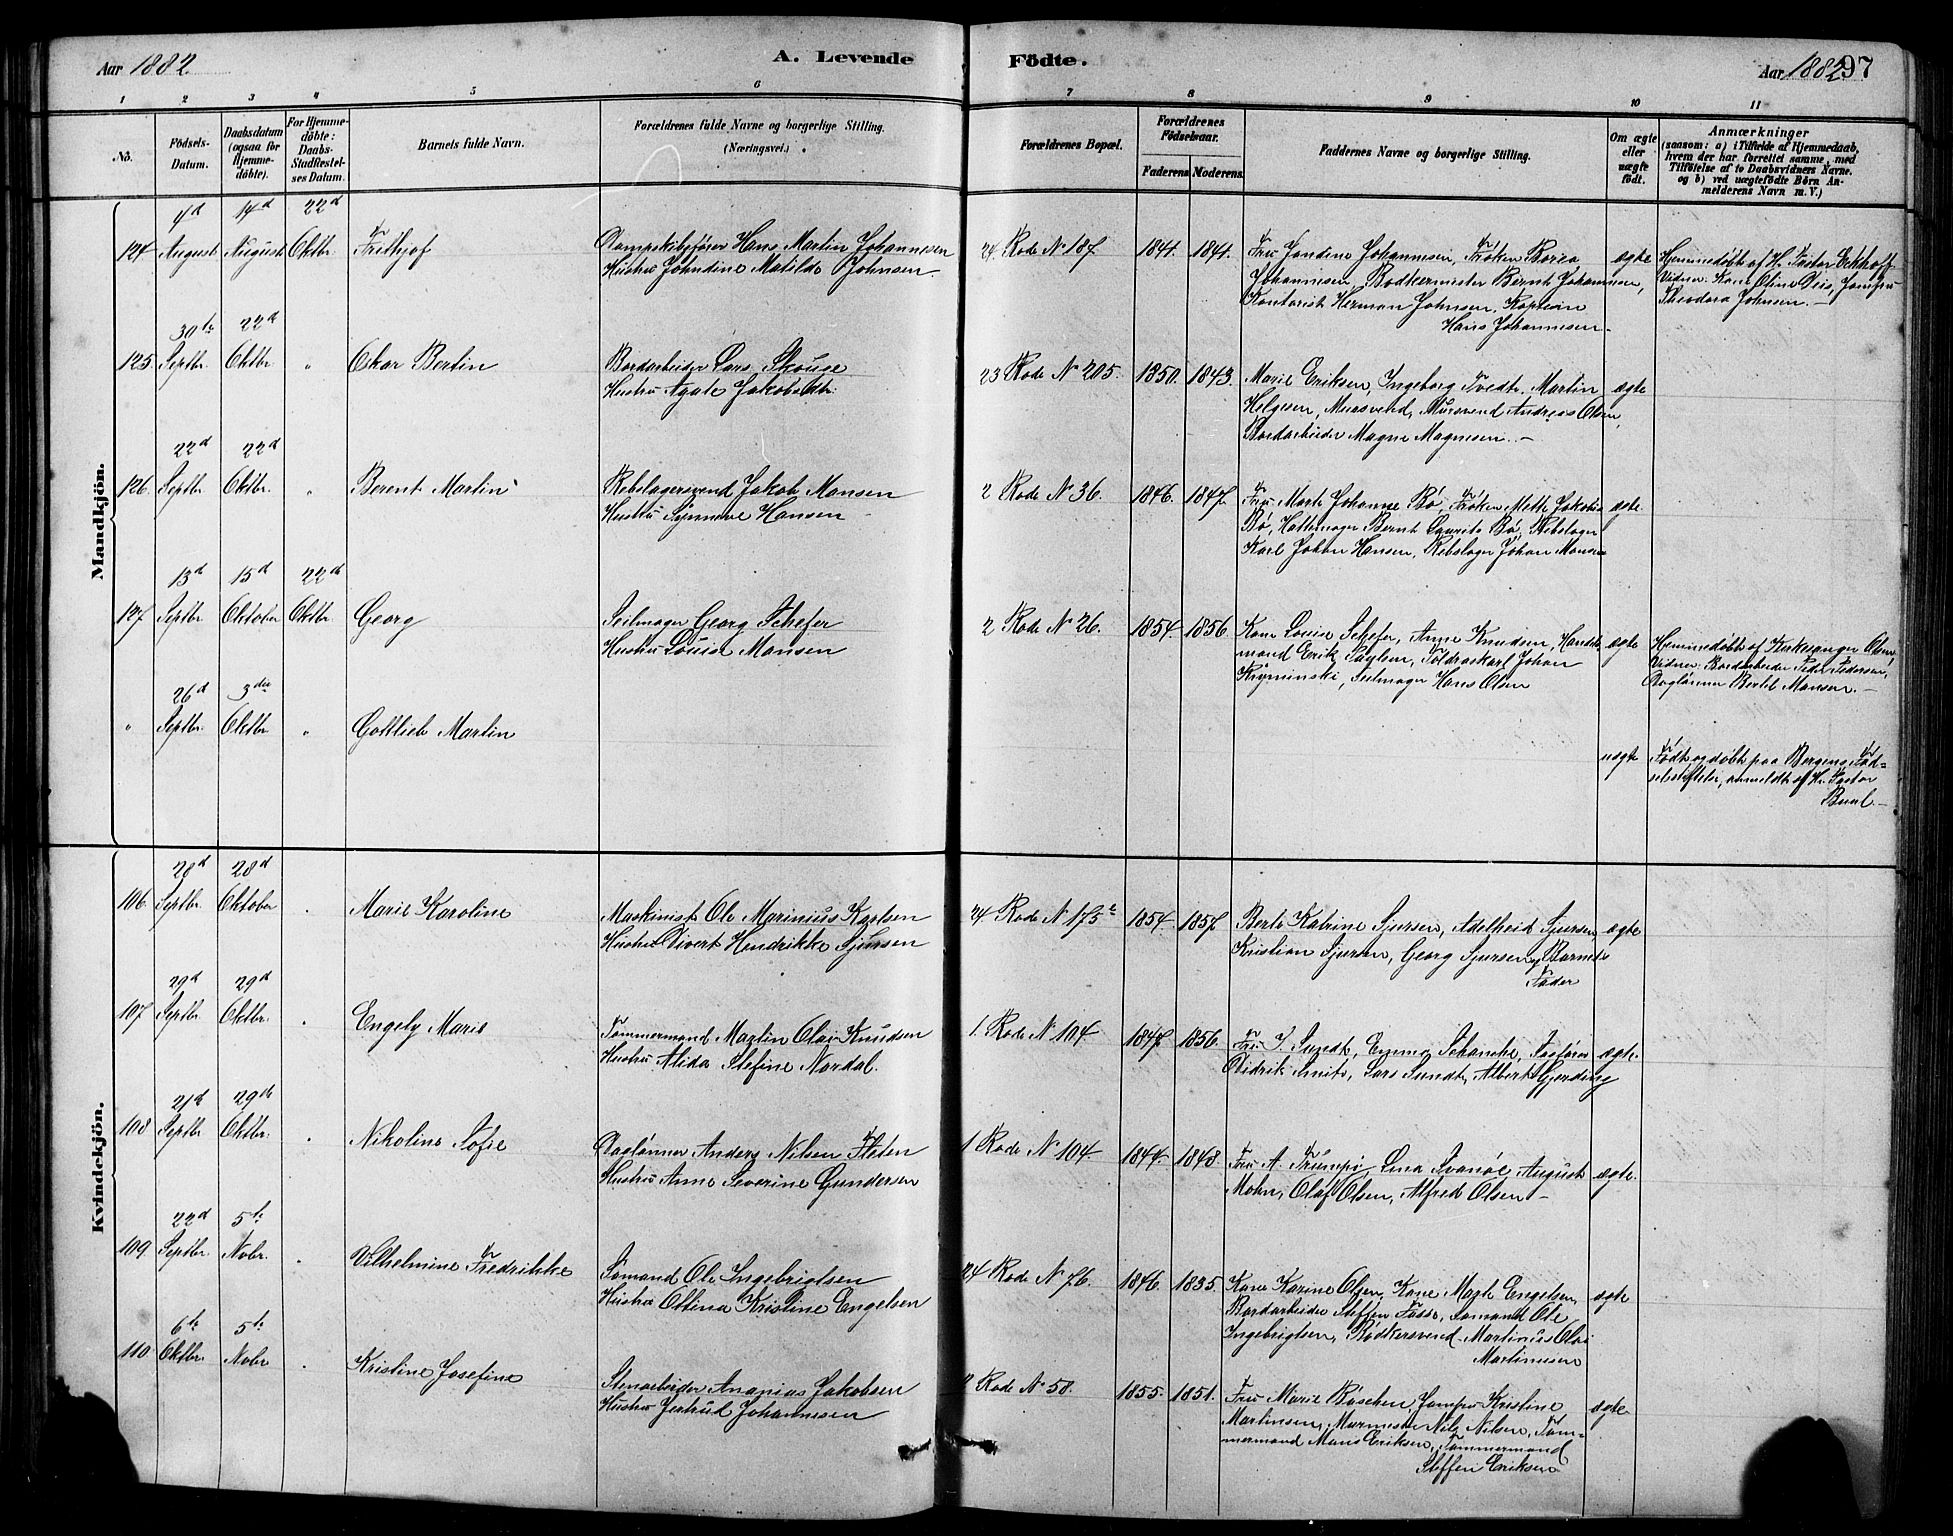 Aar 1882
A. Levende
Födte.
Aar 1882
97
1 2 3 4 5 6 7 8 9 10 11
No.
Födsels-
Datum.
Daabsdatum
(ogsaa for
Hjemme-
döbte).
For Hjemme-
döbte:
Daabs-
Stadfæstel-
ses Datum.
Barnets fulde Navn.
Forældrenes fulde Navne og borgerlige Stilling.
(Næringsvei.)
Forældrenes Bopæl.
Forældrenes
Födselsaar.
Faderens. Moderens.
Faddernes Navne og borgerlige Stilling.
Om ægte
eller
uægte
födt.
Anmærkninger
(saasom: a) i Tilfælde af Hjemmedaab,
hvem der har forrettet samme, med
Tilföielse af to Daabsvidners Navne.
og b) ved uægtefödte Börn An-
melderens Navn m. V.)
Mandkjön.
4d 14d 22d
124 August August Oktbr. Frithjof
Dampskibsfører Hans Martin Johannesen
Hustru Johndine Matilde Johnsen
24 Rode No 187 1841. 1841.
Fru Jondine Johannesen, Frøken Borea
Johannesen, Bødkermester Bernt Johannesen,
Kontorist Herman Johnsen, Kaptein
Hans Johannesen
ægte
Hjemmedøbt af H. Pastor Eckhoff
Vidner: Kone Oline Deis, Jomfru
Theodora Johnsen.
30te 22d
125. Septbr. Oktbr " Oskar Bertin
Bordarbeider Lars Skouge
Hustru Agate Jakobsdtr.
23 Rode No 205. 1850. 1843.
Marie Eriksen, Ingeborg Tvedt, Martin
Helgesen, Mursvend, Mursvend Andreas Olsen,
Bordarbeider Magne Magnesen.
ægte
22d 22d
126. Septbr. Oktbr. " Berent Martin
Rebslagersvend Jakob Monsen
Hustru Synneve Hansen
2 Rode No 36. 1846. 1847.
Fru Marte Johanne Bø, Frøken Mette Jakobia
Bø, Hattemager Bernt Laurits Bø, Rebslager
Karl Johan Hansen, Rebslager Johan Monsen
ægte.
13d 15d 22d
127 Septbr. Oktober Oktbr. Georg
Seilmager Georg Schefer
Hustru Louise Monsen
2 Rode No 26. 1854. 1856.
Kone Louise Schefer, Anne Knudsen, Handels-
mand Erik, Johan
Seilmager Hans Olsen
ægte
Hjemmedøbt af Kirkesanger Olsen,
Vidner: Bordarbeider Peder Pedersen,
Daglønner Bertel Monsen.
26d 3die
" Septbr. Oktbr. " Gottlieb Martin
uægte
Født og døbt paa Bergens Fød-
selsstiftelse, anmeldt af Hr. Pastor
Bruel
Kvindekjön.
28d 28d
106. Septbr. Oktober . Marie Karoline
Maskinist Ole Marinius Karlsen
Hustru Sivert Hendrikke Sjursen
24 Rode No 175 1854. 1857
Berte Katrine Sjursen, Adelheid Sjursen
Kristian Sjursen, Georg Sjursen, Barnets
Fader
ægte
29d 29d
107 Septbr Oktbr. . Engely Marie
Tømmermand Martin Olai Knudsen
Hustru Alida Stefine Nordal.
1. Rode No 104. 1847. 1856.
Fru J. Sundt, Emma Schanche,
Didrik Smitt, Lars Sundt, Albert Gjerding
ægte.
21d 29de
108 Septbr Oktbr. . Nikoline Sofie
Daglønner Anders Nilsen Fleten
Hustru Anne Severine Gundersen
1 Rode No 104 1844. 1848.
Fru A. Trumpi, Lina Svanøe, August
Mohn, Olaf Olsen, Alfred Olsen
ægte.
22d 5te
109. Septbr. Novbr. . Vilhelmine Fredrikke
Sømand Ole Ingebrigtsen
Hustru Oltina Kristine Engelsen
24 Rode No 76. 1846. 1835.
Kone Karine Olsen, Kone Marte Engelsen,
Bordarbeider Steffen Fosse, Sømand Ole
Ingebrigtsen, Bødkersvend Martinus Olai
Martinusen
ægte
6te 5te
110 Oktbr. Novbr . Kristine Josefine
Stenarbeider Ananias Jakobsen
Hustru Jertrud Johannesen
2 Rode No 58. 1855. 1851.
Fru Marie Büschen, Jomfru Kristine
Martinsen, Murmester Nils Nilsen, Tøm-
mermand Mons Eriksen, Tømmermand
Steffen Eriksen
ægte.